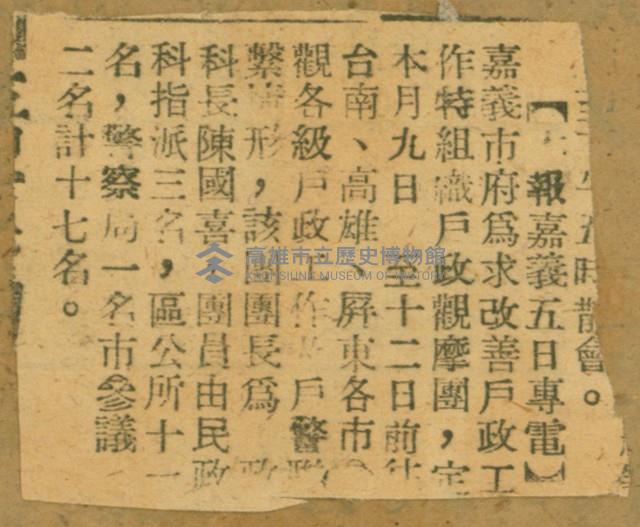 午五時散會。
【 報嘉義五日專電】
嘉義市府爲求改善戶政工
作特組織戶政觀摩團，定
本月九日 至十二日前往
台南、高雄、屏東各市
觀各級戶政工作 戶警聯
繫情形，該團團長爲 政
科長陳國喜，團員由民政
科指派三名，區公所十一
名，警察局一名市參議
二名計十七名。
高雄市立歷史博物館
KAOHSIUNG MUSEUM OF HISTORY